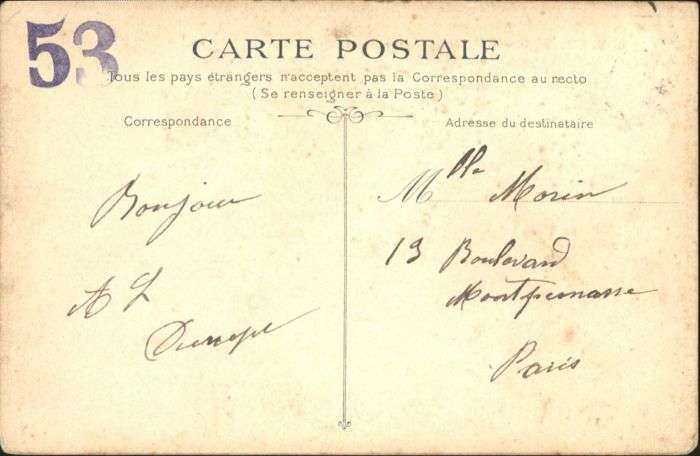 53
CARTE POSTALE
Tous les pays étrangers n'acceptent pas la Correspondance au recto
(Se renseigner à la Poste)
Correspondance
Bonjour
A L
Adresse du destinataire
Mlle Morin
13 Boulevard
Montparnasse
Paris